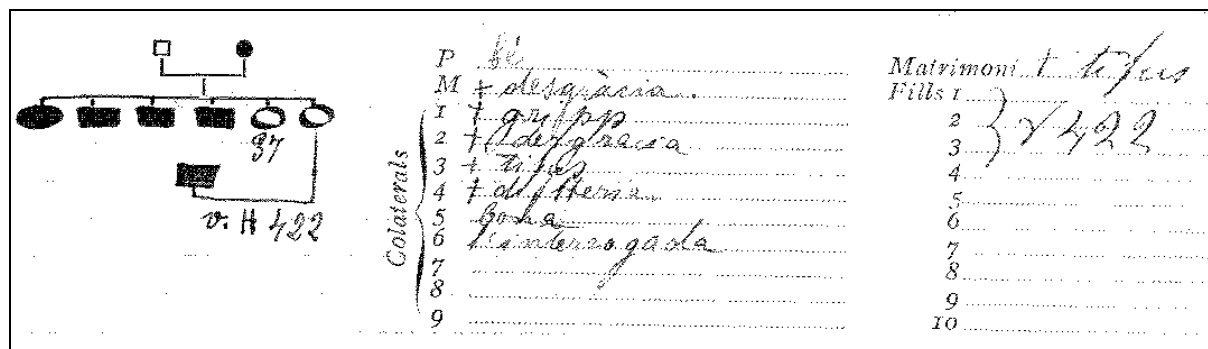 37
v. H 422
Colaterals
P bé
M + desgràcia.
1 + gripp
2 + desgracia
3 + tifus
4 + difteria
5 bona
6 l'interrogada
7
8
9
Matrimoni + tifus
Fills 1
2
3
4
5
6
7
8
9
10
v 422